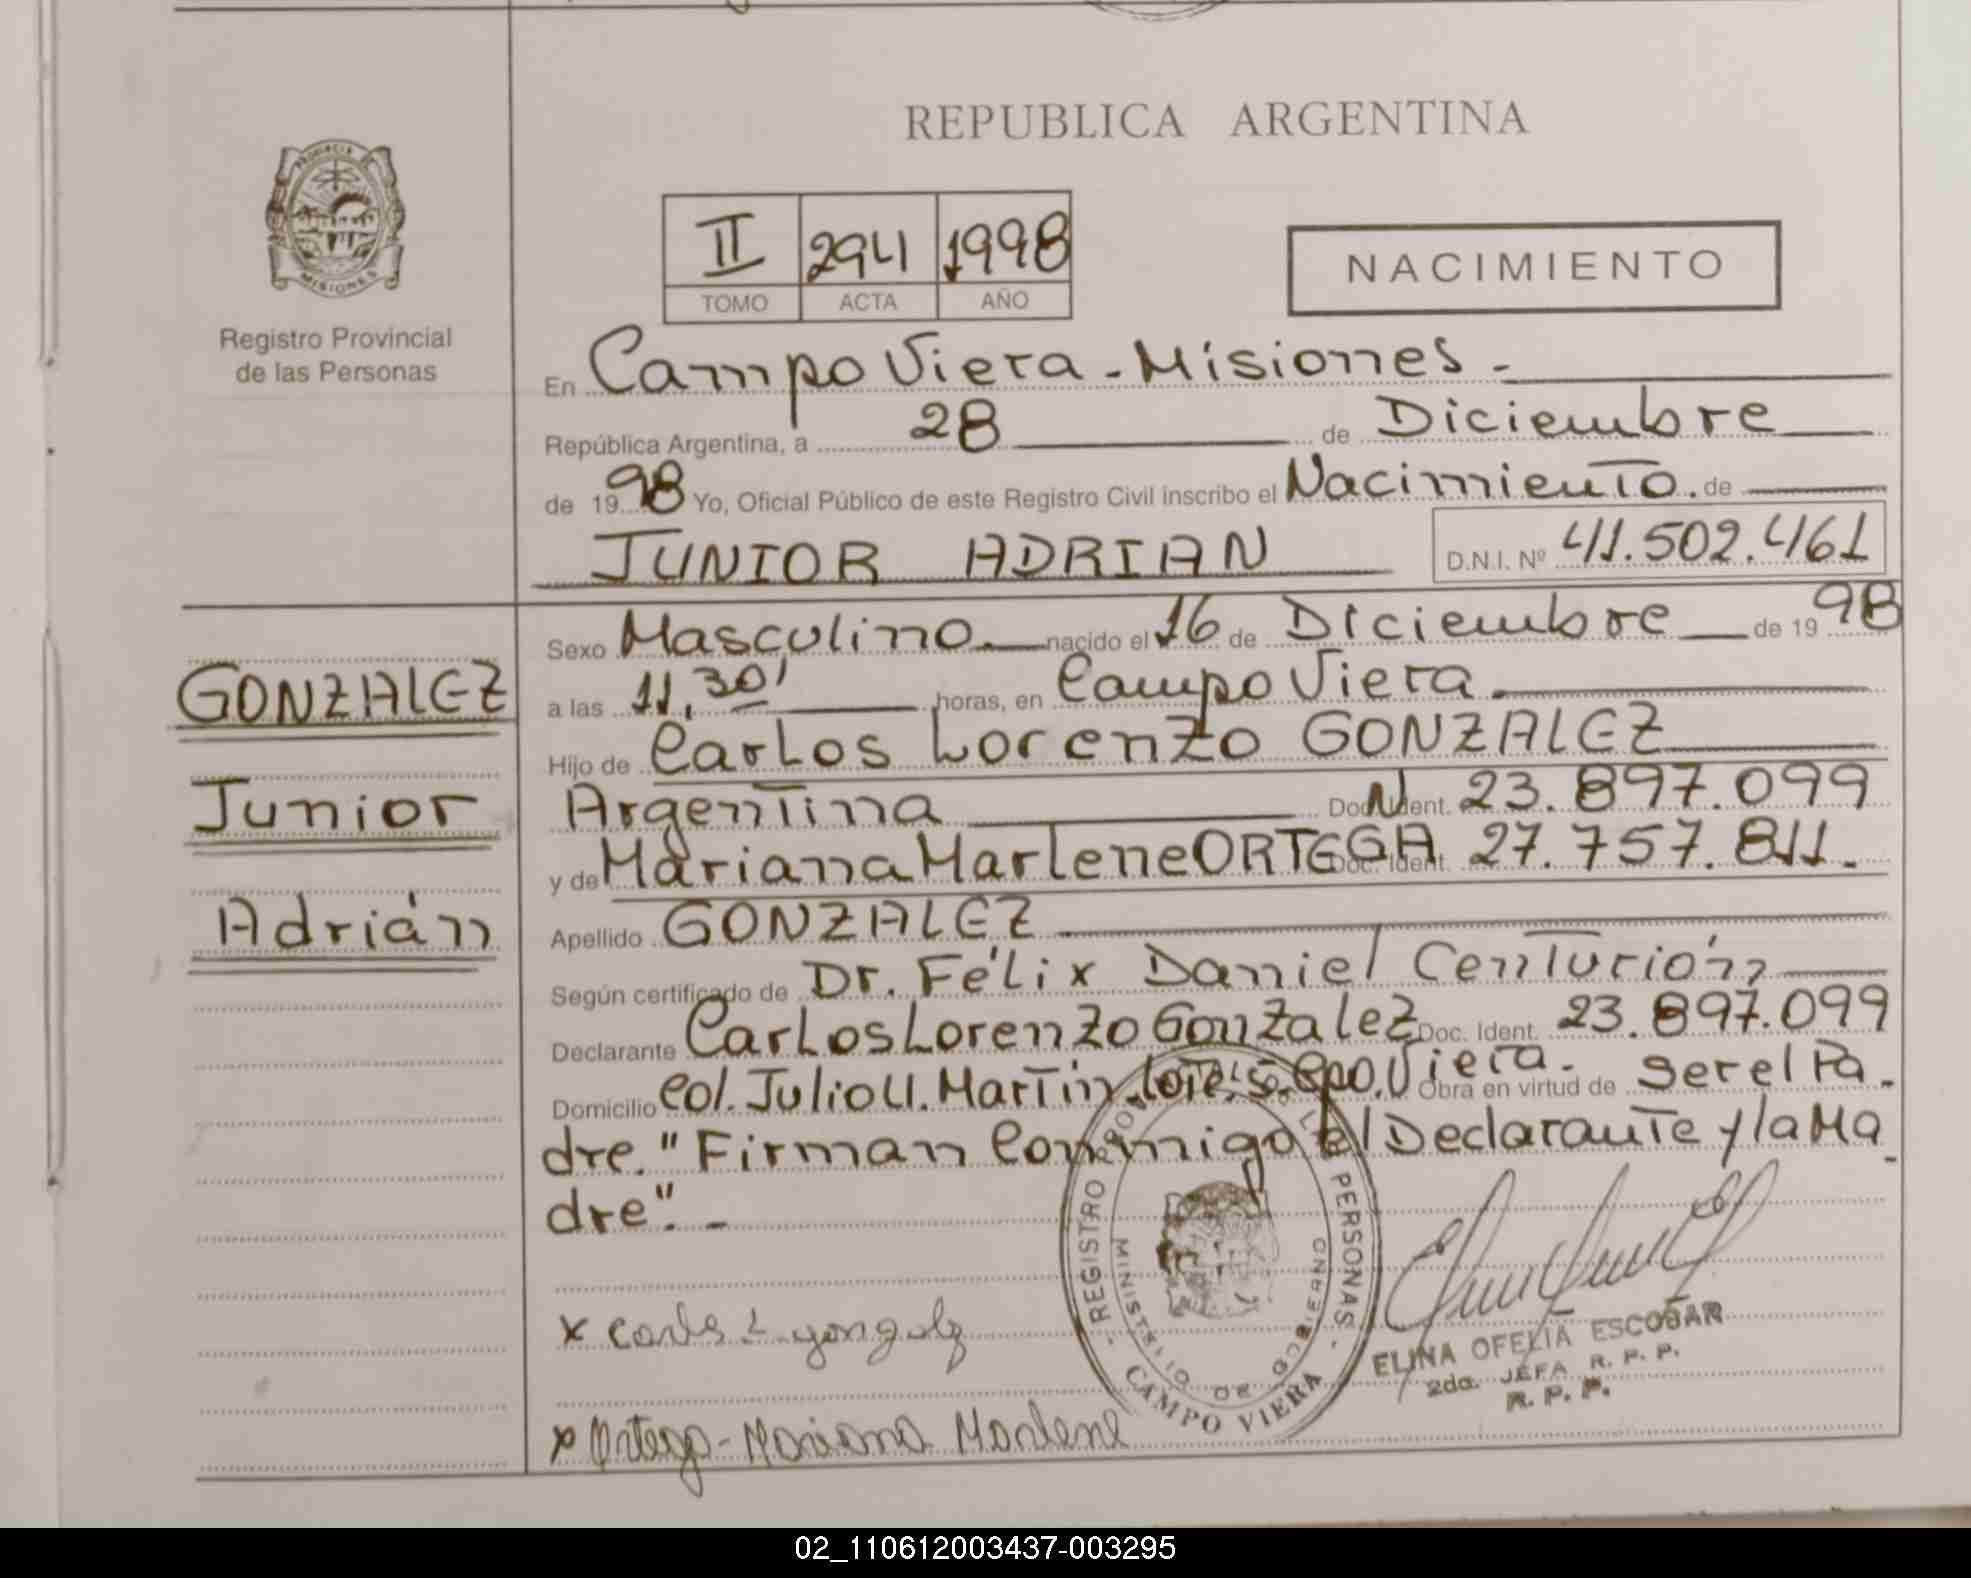 REPUBLICA ARGENTINA
PROVINCIA DE
MISIONES
Registro Provincial
de las Personas
II 294 1998
TOMO ACTA AÑO
NACIMIENTO
En Campo Viera - Misiones -
República Argentina, a 28 de Diciembre
de 1998 Yo, Oficial Público de este Registro Civil inscribo el Nacimiento. de
JUNIOR ADRIAN D.N.I. Nº 41.502.461
GONZALEZ
Junior
Adrián
Sexo Masculino. nacido el 16 de Diciembre de 1998
a las 11,30' horas, en Campo Viera.
Hijo de Carlos Lorenzo GONZALEZ
Argentina Doc. Ident. N 23.897.099
y de Mariana Marlene ORTEGA Doc. Ident. 27.757.811.
Apellido GONZALEZ
Según certificado de Dr. Félix Daniel Centurión
Declarante Carlos Lorenzo Gonzalez Doc. Ident. 23.897.099
Domicilio Col. Julio U. Martín. Lote. 5. Cpo. Viera. Obra en virtud de ser el Pa-
dre. "Firman Conmigo el Declarante y la Ma-
dre". -
x Carlos L gonzalez
x Ortega - Mariana Marlene
- REGISTRO PROV. DE LAS PERSONAS -
MINISTERIO DE GOBIERNO
CAMPO VIERA
ELINA OFELIA ESCOBAR
2da. JEFA R. P. P.
R. P. P.
02_110612003437-003295